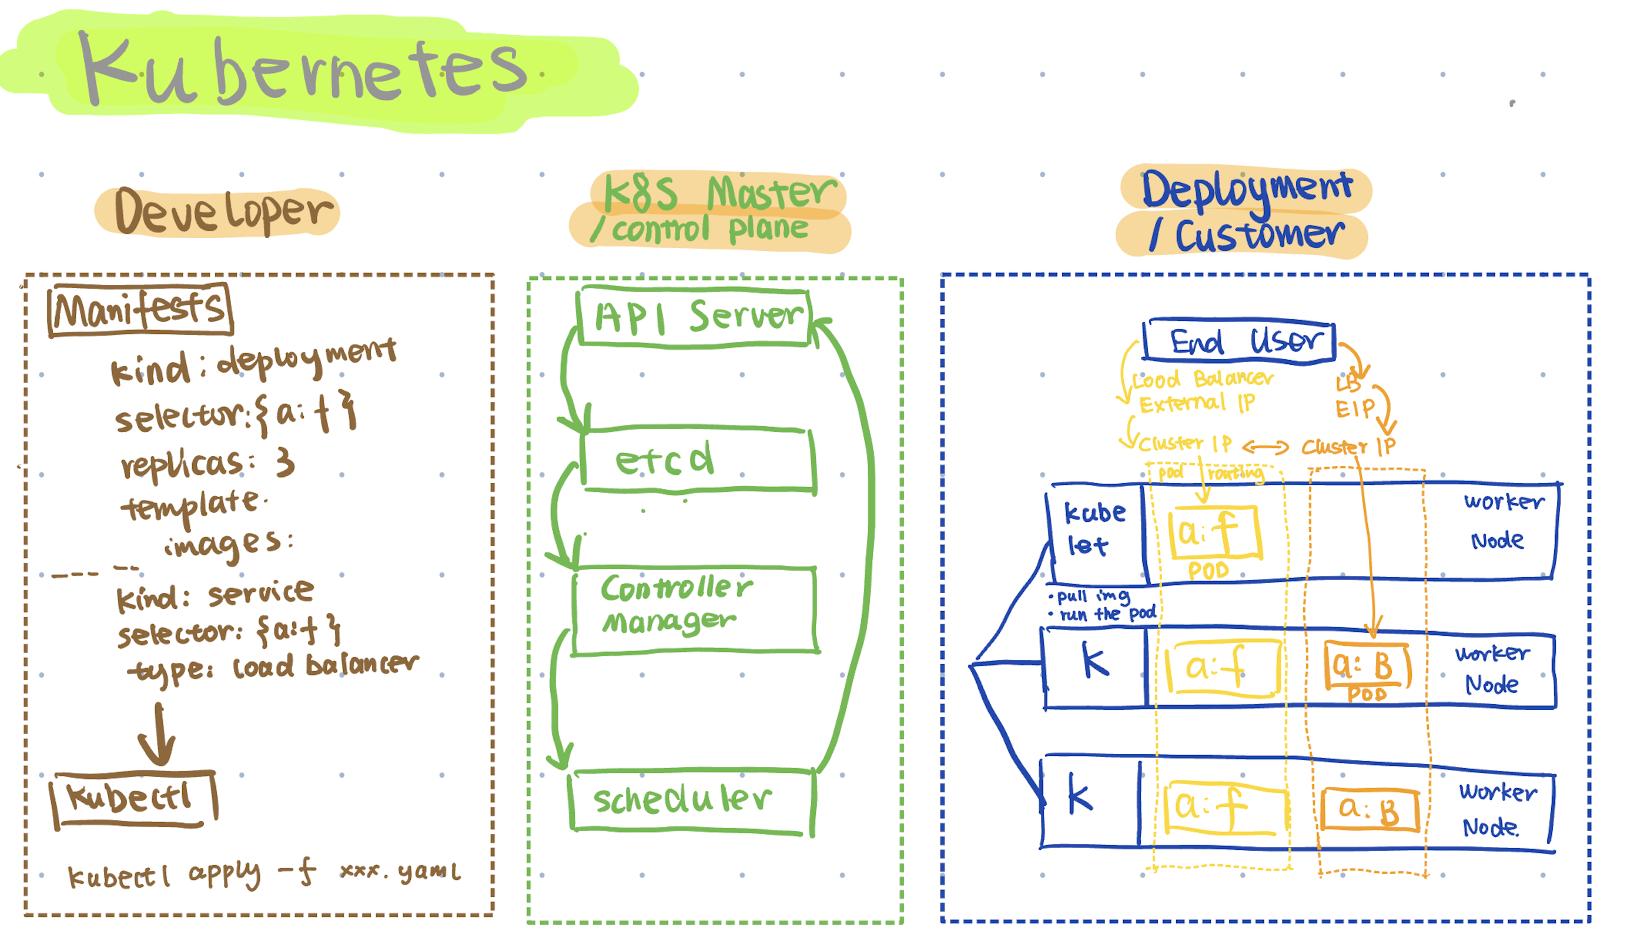 Kubernetes
Developer
Manifests
kind: deployment
selector:{a:f}
replicas: 3
template:
images:
kind: service
selector: {a:f}
type: load balancer
kubectl
kubectl apply -f xxx.yaml
K8S Master
/control plane
API Server
etcd
Controller
Manager
scheduler
Deployment
/Customer
End User
Load Balancer
External IP
Cluster IP
LB
EIP
Cluster IP
pod routing
kube
let
a:f
POD
worker
Node
• pull img
• run the pod
K
a:f
a:B
POD
worker
Node
K
a:f
a:B
worker
Node.